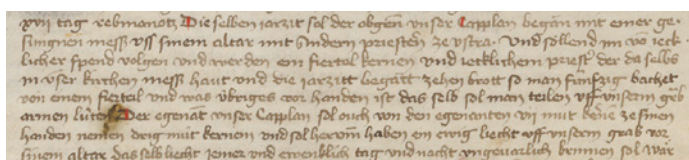 xvii tag rebmanotz Die selben iarzit sol der obgen unser Capplan began mit einer ge-
sungnen mess uff sinem altar mit andern priestern ze ustra. Und söllend im vo jeck-
licher spend volgen und werden ein fiertel kernen und jecklichem priest der da selbs
in unser kirchen mess haut und die iarzitt begatt zehen brott so man fünfzig bachet
von einem fierteil und was übriges vor handen ist das selb sol man teilen uff unserm grab
armen lüten Der egenat unser Capplan sol ouch von den egenanten vii mut kerne ze sinen
handen nemen drig mut kernen und sol hervm haben ein ewig liecht uff unserm grab vor
sinem altar das selb liecht jemer und ewenklich tag und nacht ungevarlich brennen sol wär